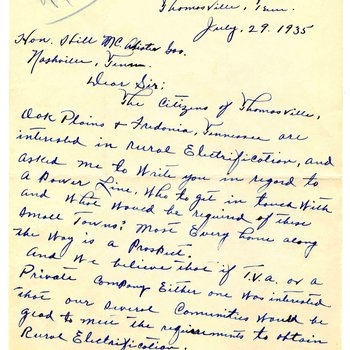 Thomasville, Tenn.
July, 29. 1935
Hon. Hill McAlister Gov.
Nashville, Tenn.
Dear Sir:
The Citizens of Thomasville,
Oak Plains & Fredonia, Tennessee are
intersted in Rural Electrification, and
asked me to Write you in regard to
a Power Line, Who to get in touch With
and What Would be required of these
Small Towns? Most Every home along
the Way is a Prospect.
And We believe that if T.V.a. or a
Private Company Either one Was intersted
that our several Communities Would be
glad to meet the requirements to obtain
Rural Electrification.